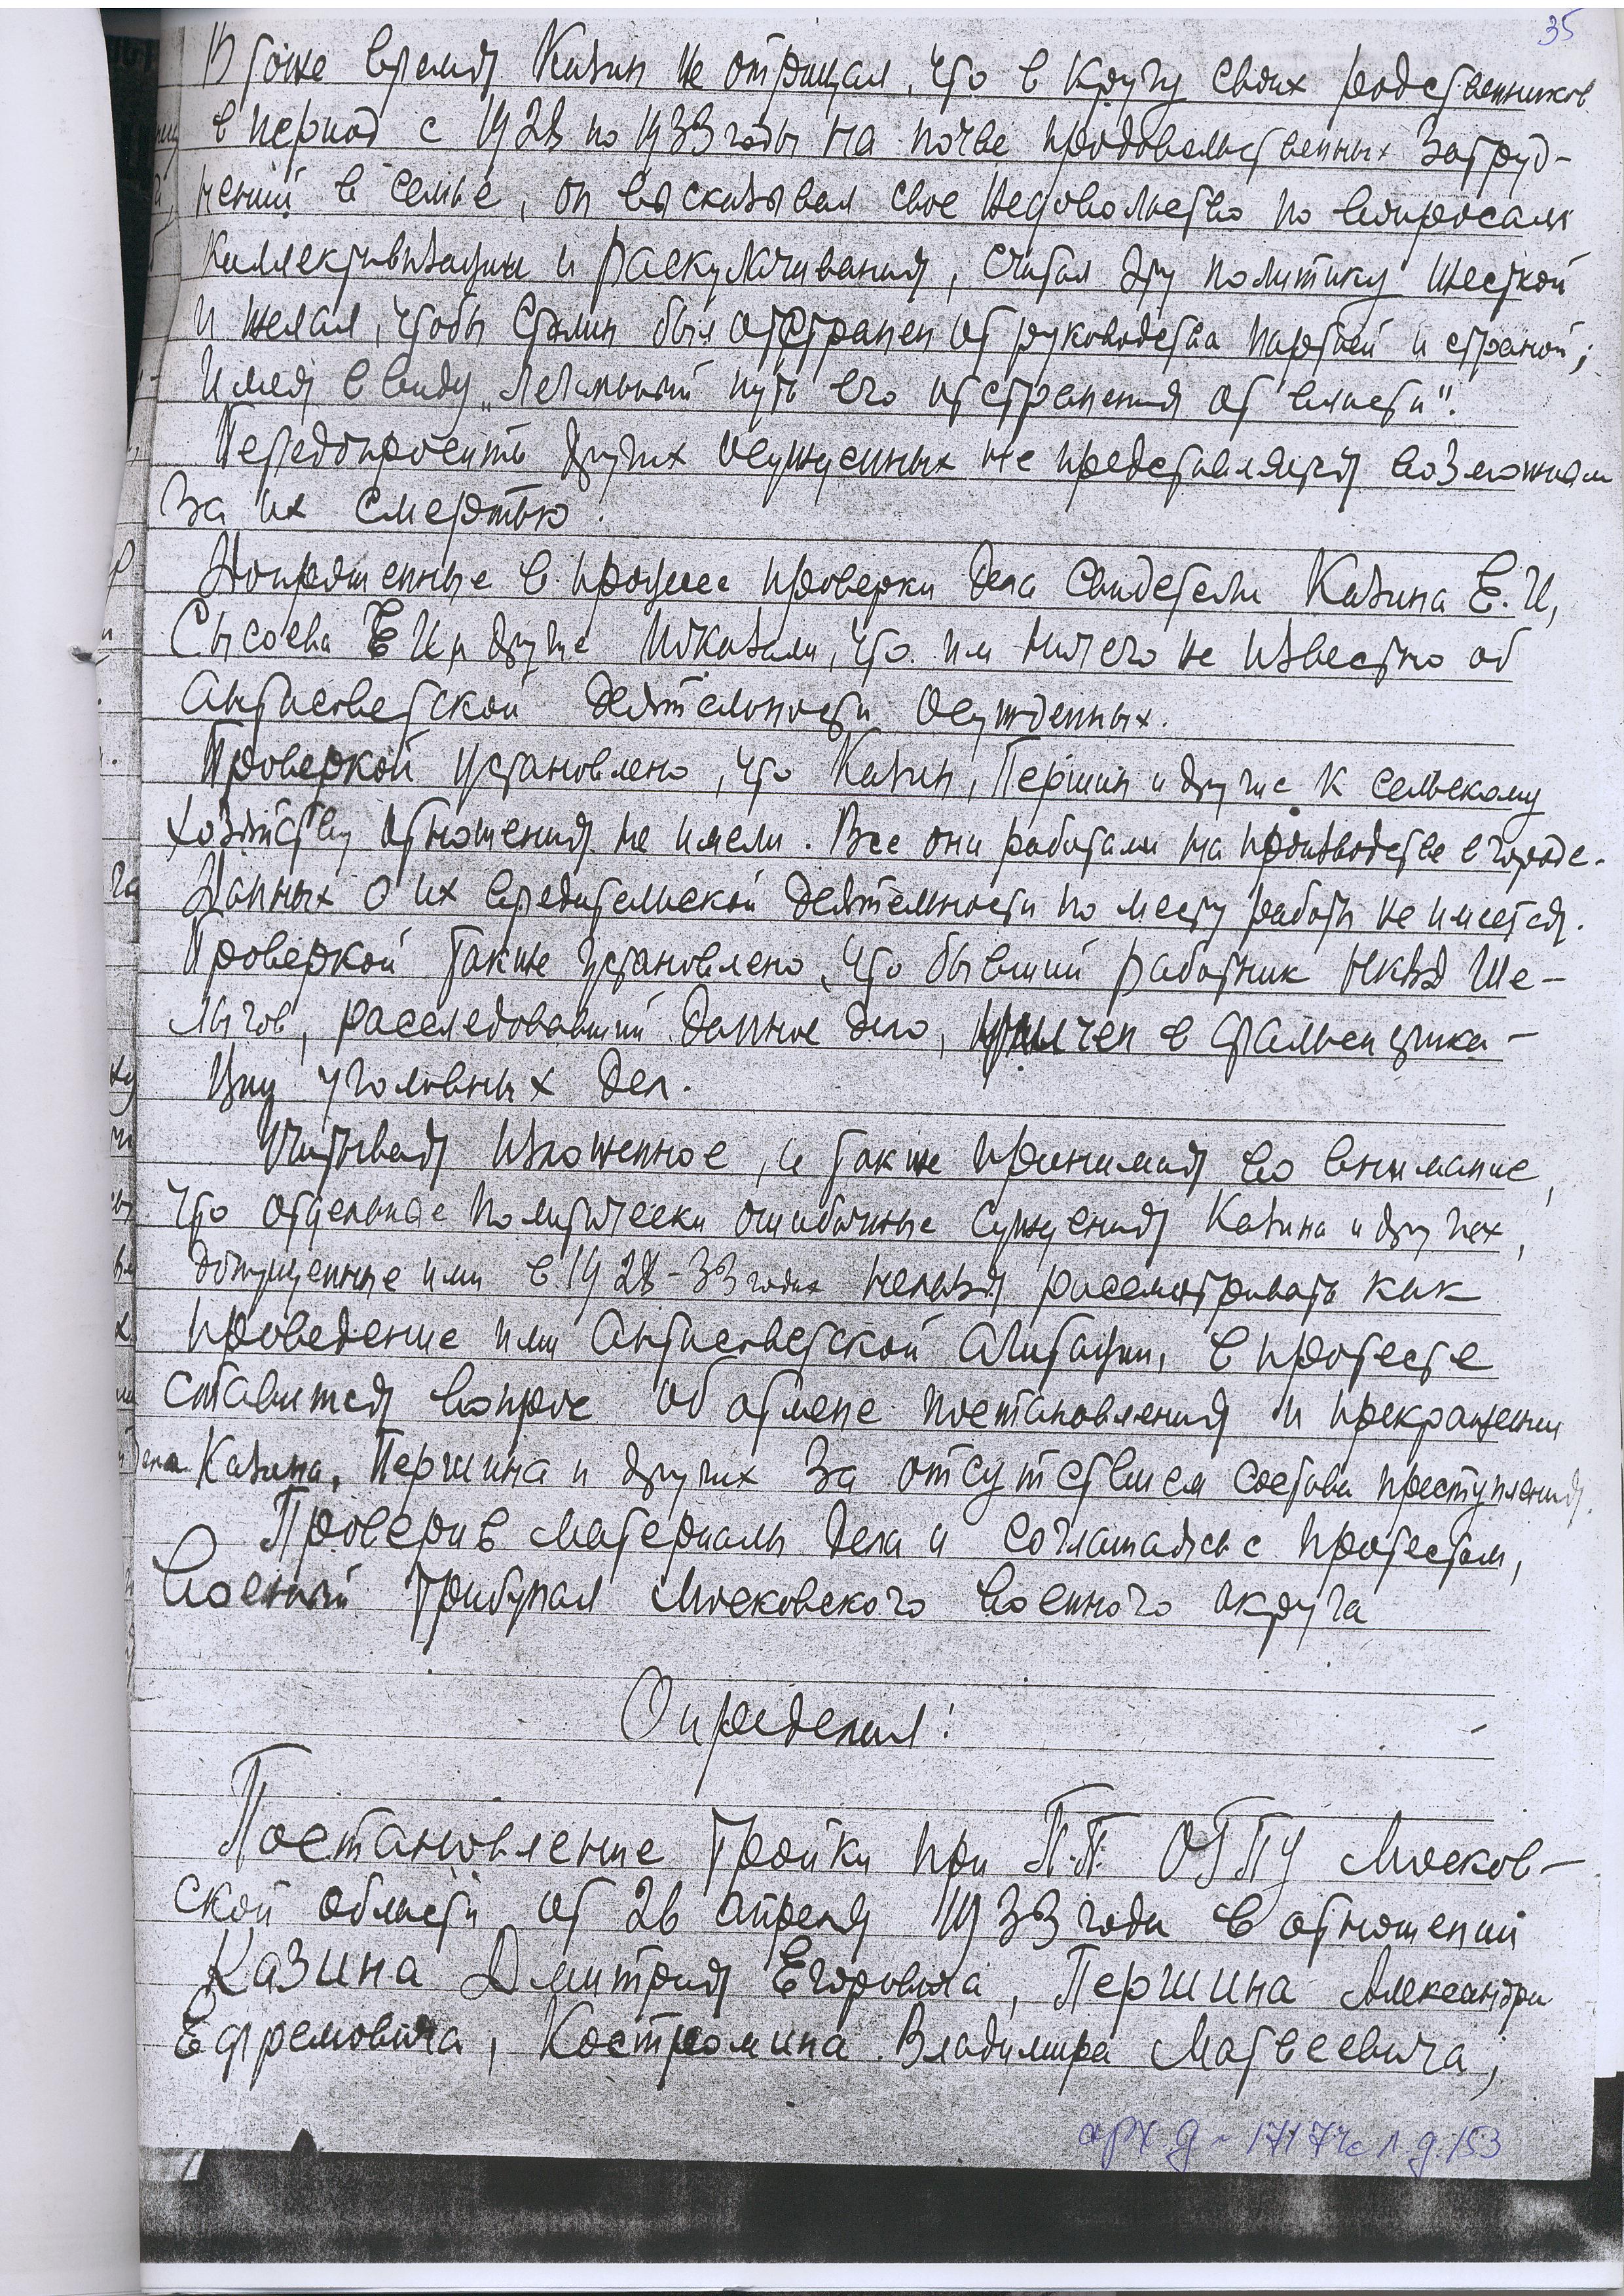 35
В тоже время Казин не отрицал, что в кругу своих родственников
в период с 1928 по 1933 годы на почве продовольственных затруд-
нений в семье, он высказывал свое недовольство по вопросам
коллективизации и раскулачивания, считал эту политику жесткой
и желал, чтобы Сталин был отстранен от руководства партией и страной,
имея в виду „легальный путь его отстранения от власти".
Передопросить других осужденных не представляется возможным
за их смертью.
Допрошенные в процессе проверки дела свидетели Казина Е.И,
Сысоева Е И и другие показали, что им ничего не известно об
антисоветской деятельности осужденных.
Проверкой установлено, что Казин, Першин и другие к сельскому
хозяйству отношения не имели. Все они работали на производстве в городе.
Данных о их вредительской деятельности по месту работы не имеется.
Проверкой также установлено, что бывший работник НКВД Ше-
лыгов, расследовавший данное дело, уличен в фальсифика-
ции уголовных дел.
Учитывая изложенное, а также принимая во внимание,
что отдельные политически ошибочные суждения Казина и других,
допущенные ими в 1928-33 годах нельзя рассматривать как
проведение ими антисоветской агитации, в протесте
ставится вопрос об отмене постановления и прекращении
дела Казина, Першина и других за отсутствием состава преступления.
Проверив материалы дела и соглашаясь с протестом,
военный трибунал Московского военного округа
Определил:
Постановление тройки при П.П. ОГПУ Москов-
ской области от 26 апреля 1933 года в отношении
Казина Дмитрия Егоровича, Першина Александра
Ефремовича, Костромина Владимира Матвеевича,
арх д - 17174с л. д. 153